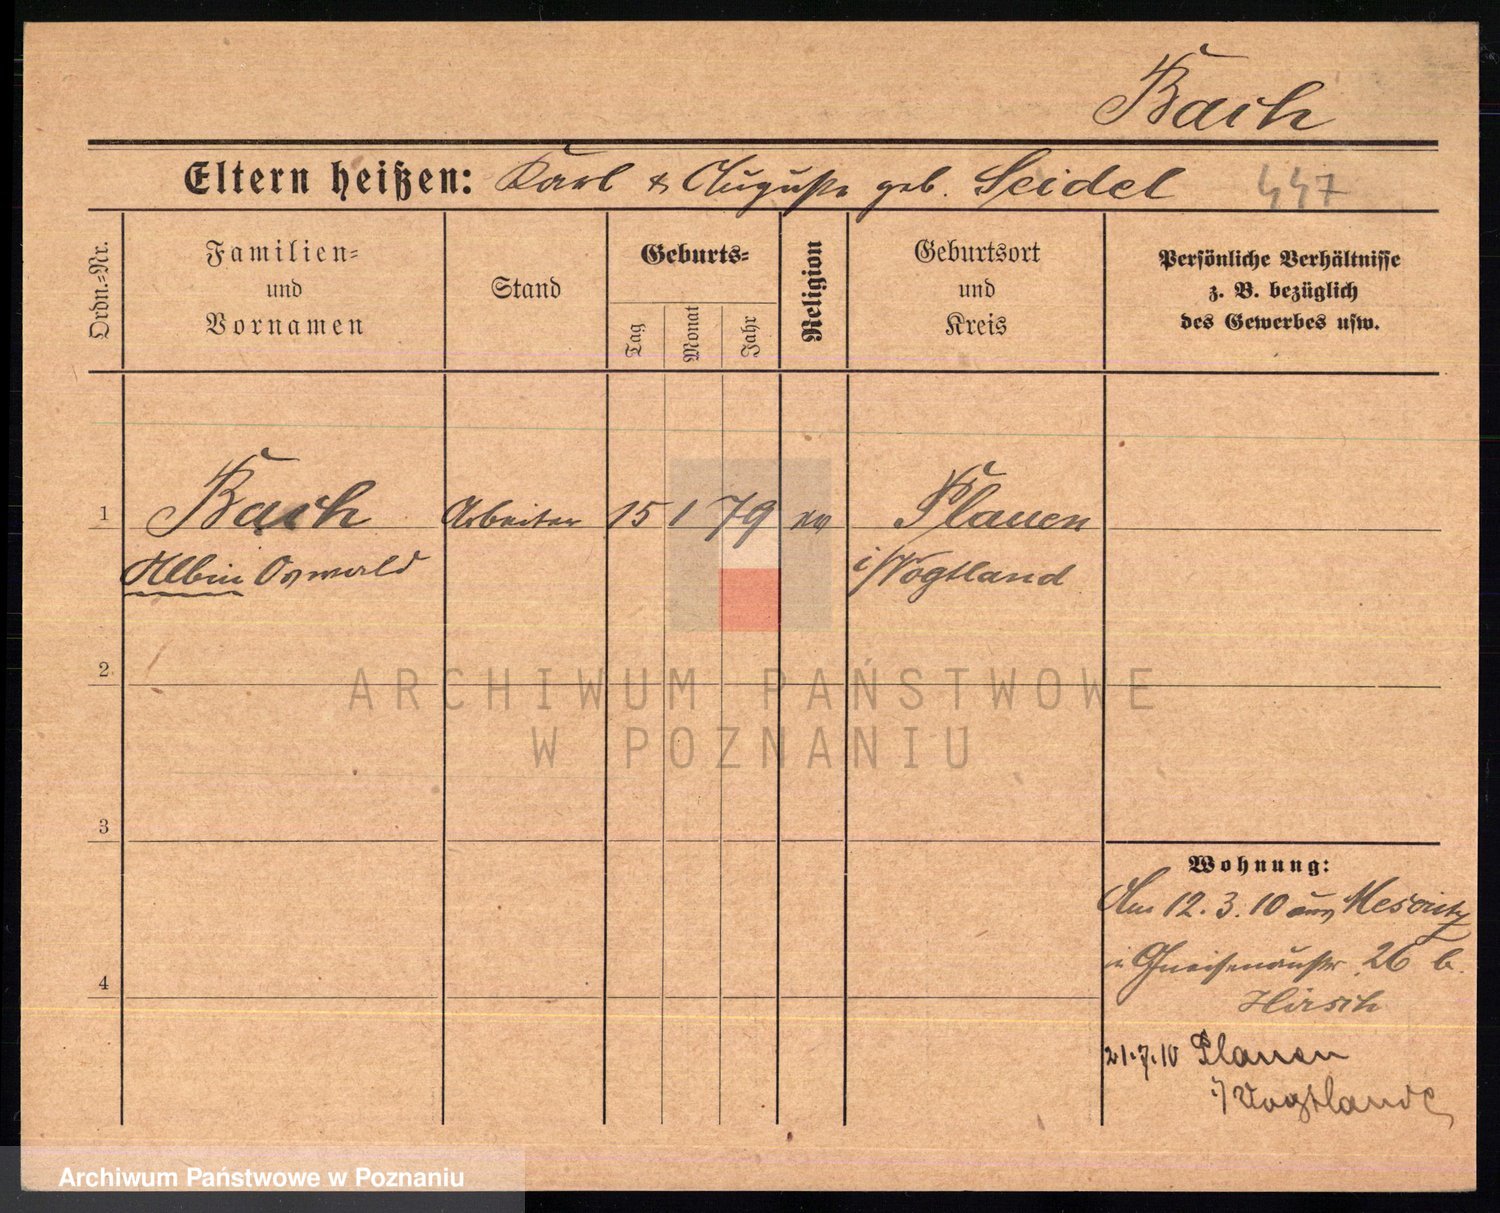 Bach
Eltern heißen: Karl & Auguste geb. Seidel 447
Ordn.-Nr.
Familien-
und
Vornamen
Stand
Geburts-
Tag
Monat
Jahr
Religion
Geburtsort
und
Kreis
Persönliche Verhältnisse
z. B. bezüglich
des Gewerbes usw.
1 Bach Arbeiter 15 1 79 ev Plauen
Albin Oswald i/Vogtland
2
ARCHIWUM PAŃSTWOWE
W POZNANIU
3
Wohnung:
Am 12.3.10 aus Meseritz
in Gneisenaustr 26 b.
4
Hirsch
21.7.10 Plauen
i/Vogtlande
Archiwum Państwowe w Poznaniu